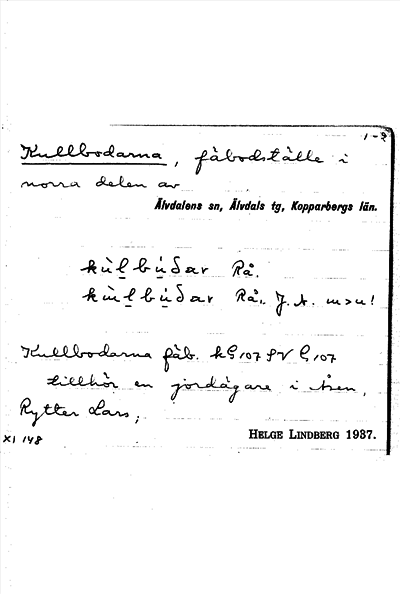 1-2
Kullbodarna, fäbodställe i
norra delen av
Älvdalens sn, Älvdals tg, Kopparbergs län.
Rå.
Rå.. J. A.
Kullbodarna fäb.
tillhör en jordägare i Åsen,
Rytter Lars;
XI 148
HELGE LINDBERG 1937.